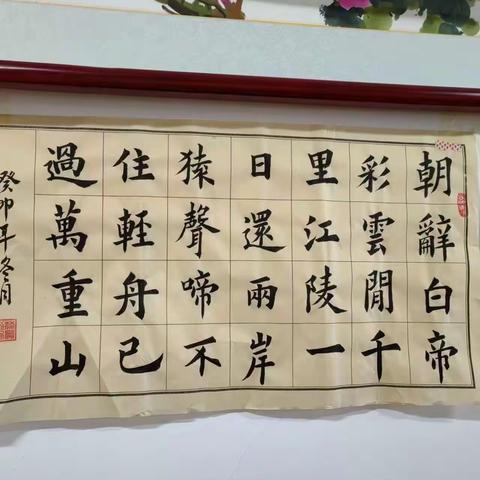 朝辭白帝
彩雲間千
里江陵一
日還兩岸
猿聲啼不
住輕舟已
過萬重山
癸卯年冬月